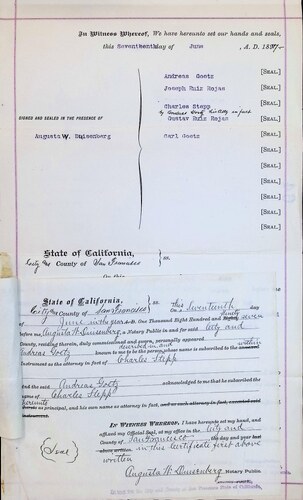 In Witness Whereof, We have hereunto set our hands and seals,
this Seventeenth day of June , A. D. 1897.
Andreas Goetz [SEAL]
Joseph Ruiz Rojas [SEAL.]
Charles Stepp [SEAL.]
by Andreas Goetz his Atty in fact
Gustav Ruiz Rojas [SEAL.]
SIGNED AND SEALED IN THE PRESENCE OF
Augusta W. Duisenberg
Carl Goetz [SEAL.]
[SEAL.]
[SEAL.]
[SEAL.]
[SEAL.]
[SEAL.]
[SEAL.]
State of California, } ss.
City and County of San Francisco
State of California, } ss.
City and County of San Francisco
On this Seventeenth day
of June in the year A.D. One Thousand Eight Hundred and Ninety seven
before me, Augusta W. Duisenberg, a Notary Public in and for said City and
County, residing therein, duly commissioned and sworn, personally appeared
Andreas Goetz known to me to be the person whose name is subscribed to the within
Instrument as the attorney in fact of Charles Stepp
and the said Andreas Goetz acknowledged to me that he subscribed
the name of Charles Stepp
thereunto as principal, and his own name as attorney in fact.
IN WITNESS WHEREOF, I have hereunto set my hand, and
affixed my Official Seal, at my office in the City and
County of San Francisco the day and year
in this Certificate first above
written
(Seal)
Augusta W. Duisenberg Notary Public